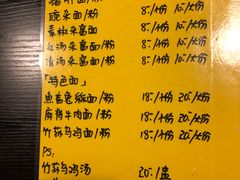 豌杂面/粉 8-/小份 10-/大份
素椒杂酱面/粉 8-/小份 10-/大份
红汤杂酱面/粉 8-/小份 10-/大份
清汤杂酱面/粉 8-/小份 10-/大份
「特色面」
鱼香兔丝面/粉 18-/小份 20-/大份
麻辣牛肉面/粉 18-/小份 20-/大份
竹荪乌鸡面/粉 18-/小份 20-/大份
PS:
竹荪乌鸡汤 20-/盅